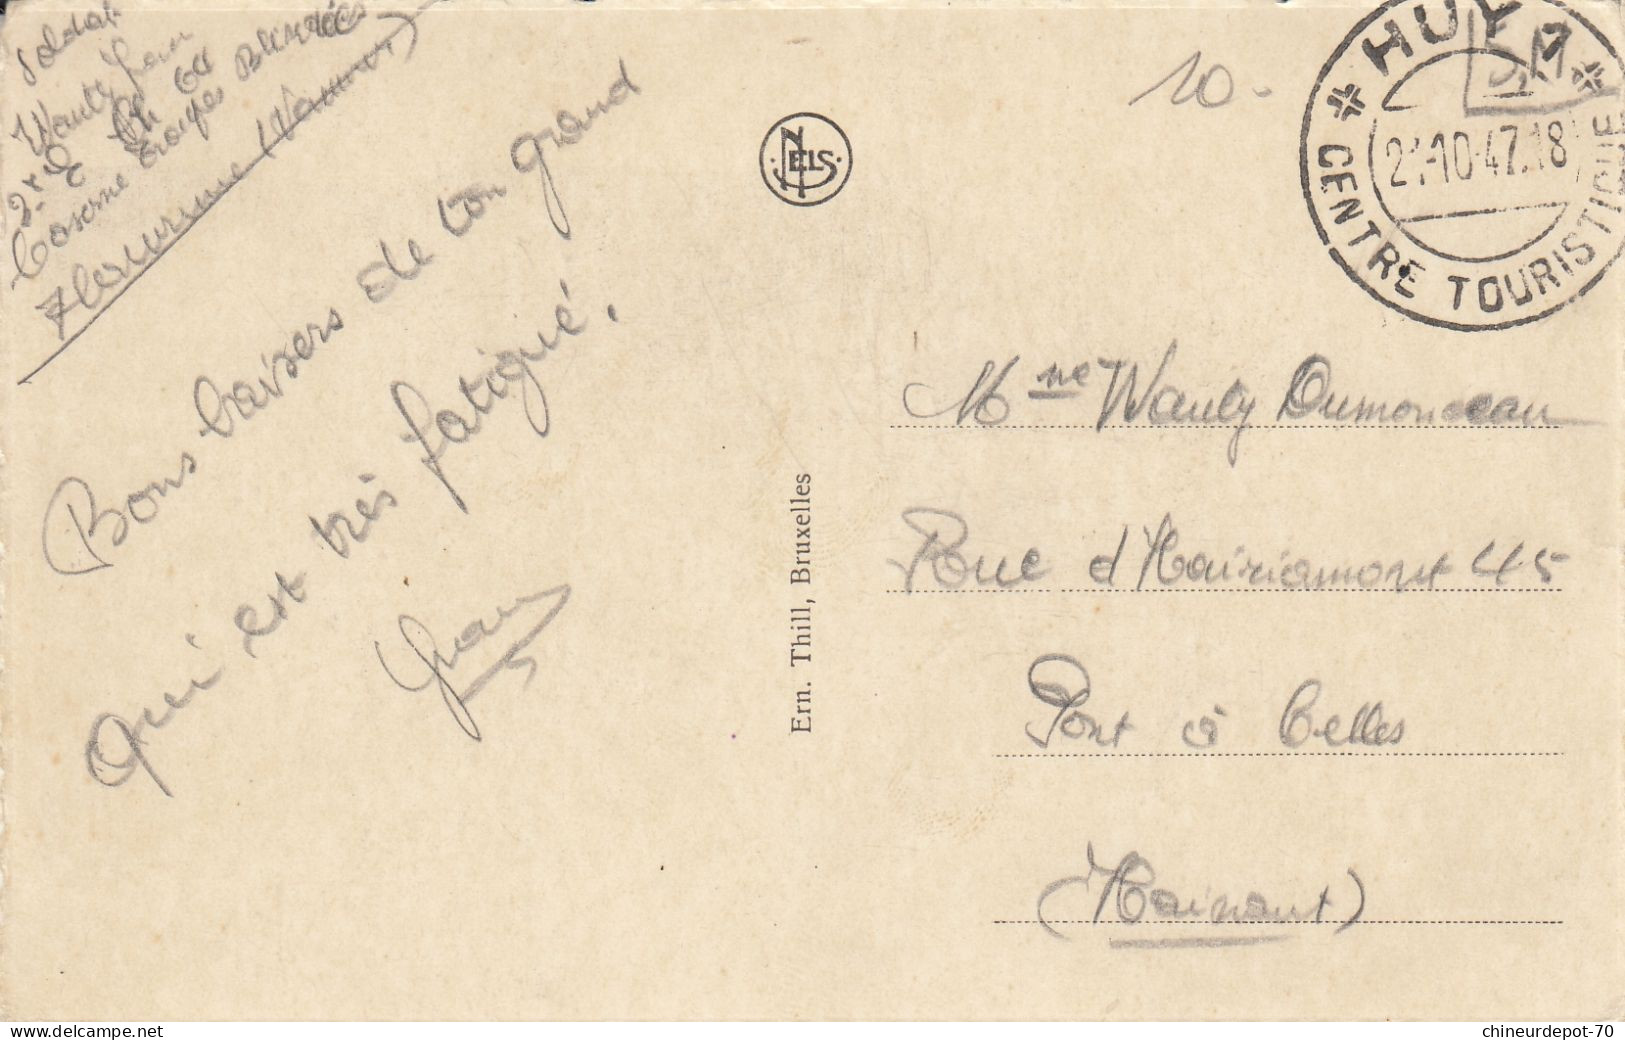 Soldat
Wauty Jean
Caserne troupes Blindées
Florenne (Namur)
Bons baisers de ton grand
qui est très fatigué.
Jean
NELS
Ern. Thill, Bruxelles
10-
S.M
HUY 1
21-10-47.18
CENTRE TOURISTIQUE
Mme Wauty Dumonceau
Rue d'Hairiamont 45
Pont à Celles
(Hainaut)
chineurdepot-70